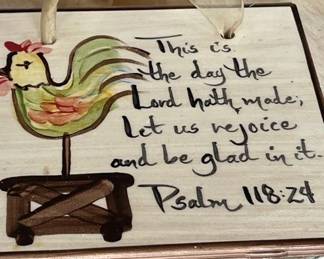 This is
the day the
Lord hath made;
Let us rejoice
and be glad in it.
Psalm 118:24